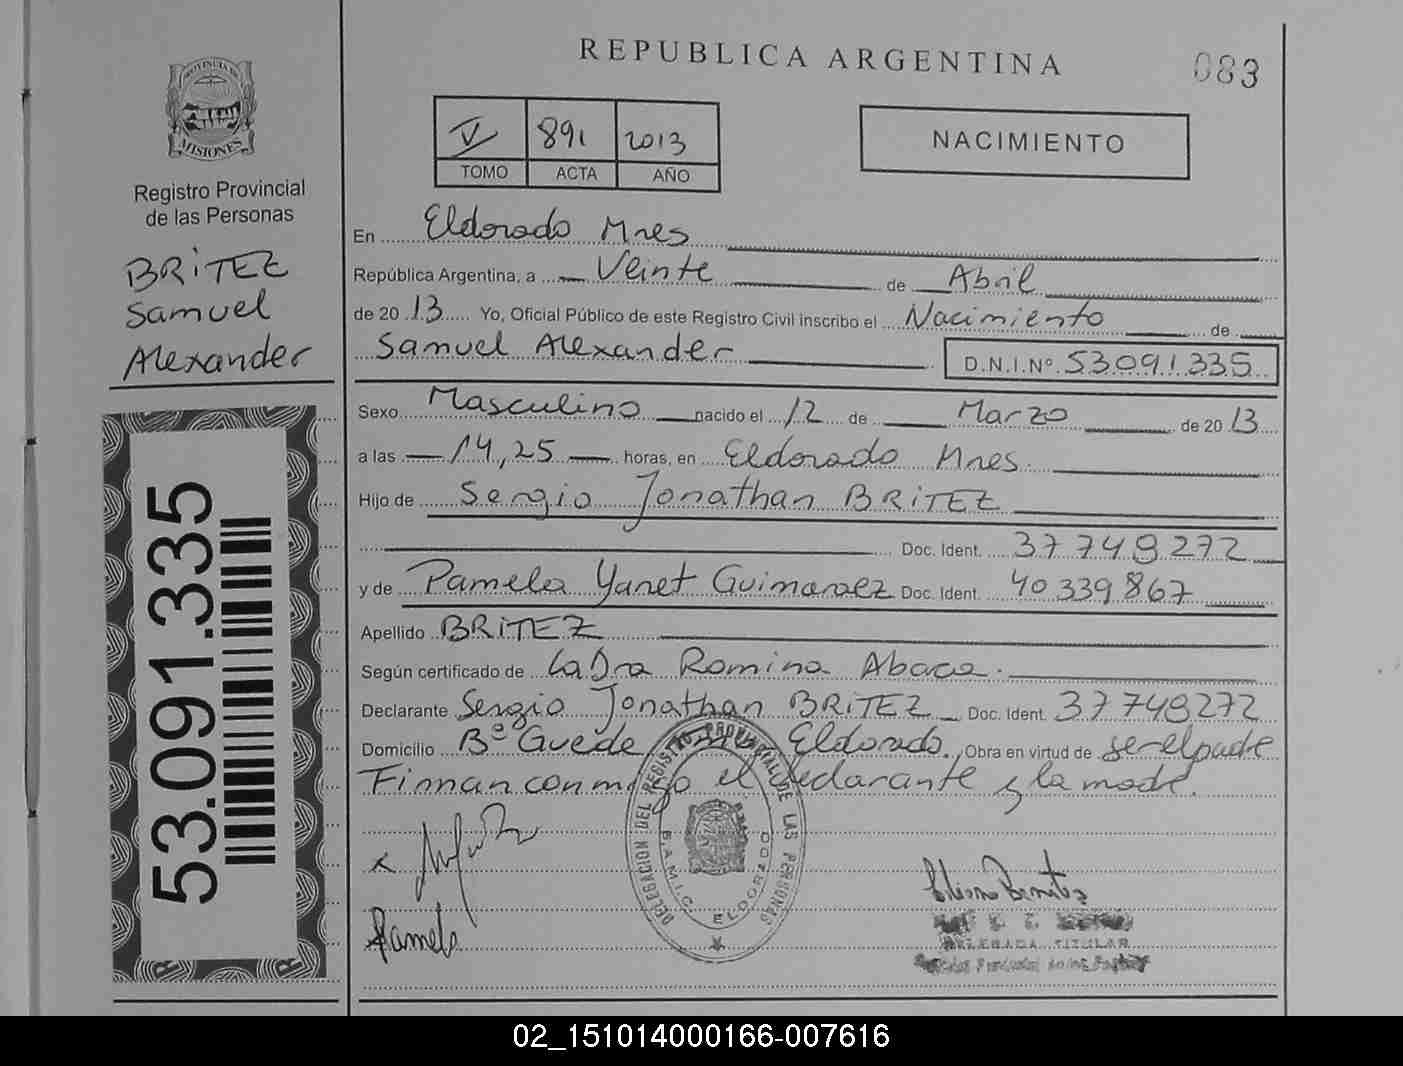 REPUBLICA ARGENTINA
083
PROVINCIA DE
MISIONES
Registro Provincial
de las Personas
BRITEZ
Samuel
Alexander
53.091.335
V 891 2013
TOMO ACTA AÑO
NACIMIENTO
En Eldorado Mnes
República Argentina, a Veinte de Abril
de 20 13 Yo, Oficial Público de este Registro Civil inscribo el Nacimiento de
Samuel Alexander D.N.I.Nº 53.091.335
Sexo Masculino nacido el 12 de Marzo de 20 13
a las 14,25 horas, en Eldorado Mnes.
Hijo de Sergio Jonathan BRITEZ
Doc. Ident. 37 749 272
y de Pamela Yanet Guimaraez Doc. Ident. 40 339 867
Apellido BRITEZ
Según certificado de La Dra Romina Abaca.
Declarante Sergio Jonathan BRITEZ Doc. Ident. 37 749272
Domicilio Bº Guede Eldorado. Obra en virtud de ser el padre
Firman conmigo el declarante y la madre.
x
Pamela
DELEGACION DEL REGISTRO PROVINCIAL DE LAS PERSONAS
B.A.M.I.C. ELDORADO
DELEGADA TITULAR
02_151014000166-007616